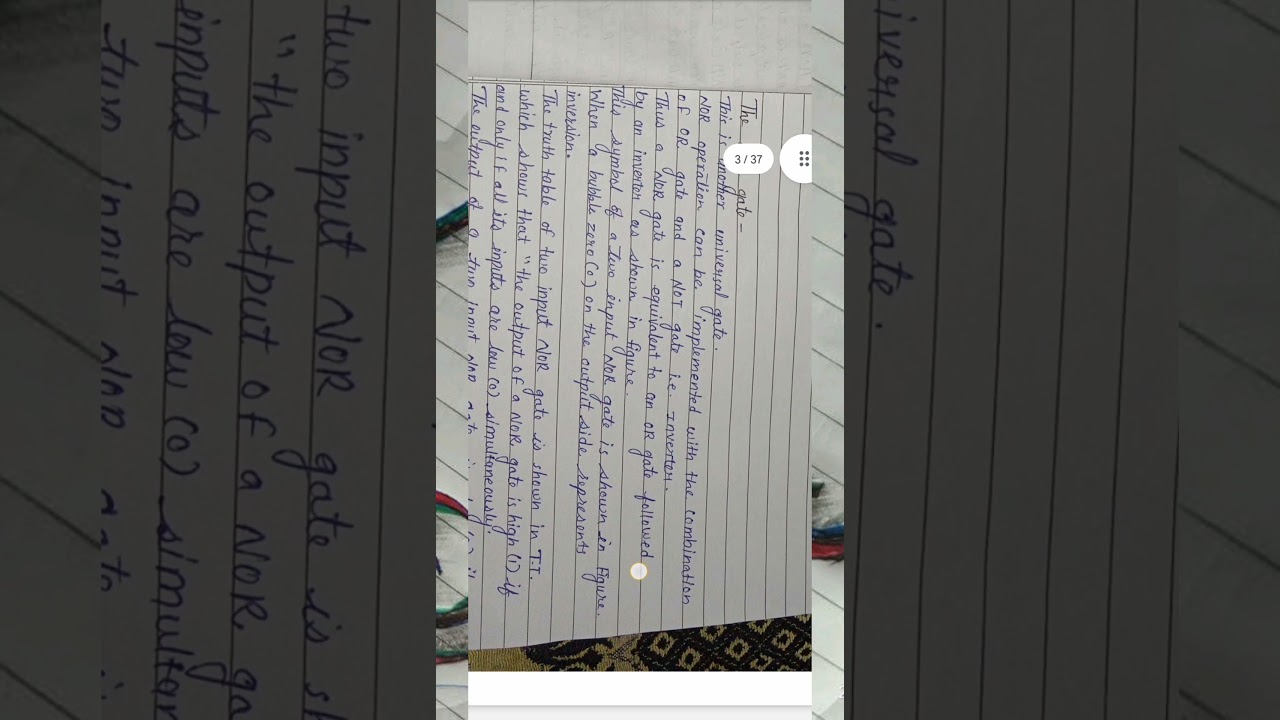 The gate –
This is another universal gate.
NOR operation can be implemented with the combination
of OR gate and a NOT gate i.e. Invertor.
Thus a NOR gate is equivalent to an OR gate followed
by an invertor as shown in figure.
This symbol of a two input NOR gate is shown in Figure.
When a bubble zero (o) on the output side represents
inversion.
The truth table of two input NOR gate is shown in T.T.
which shows that "the output of a NOR gate is high (1) if
and only if all its inputs are low (0) simultaneously."
The output of a two input
3 / 37
two input NOR gate is sh
"the output of a NOR ga
inputs are low (0) simultan
two input
iversal gate.